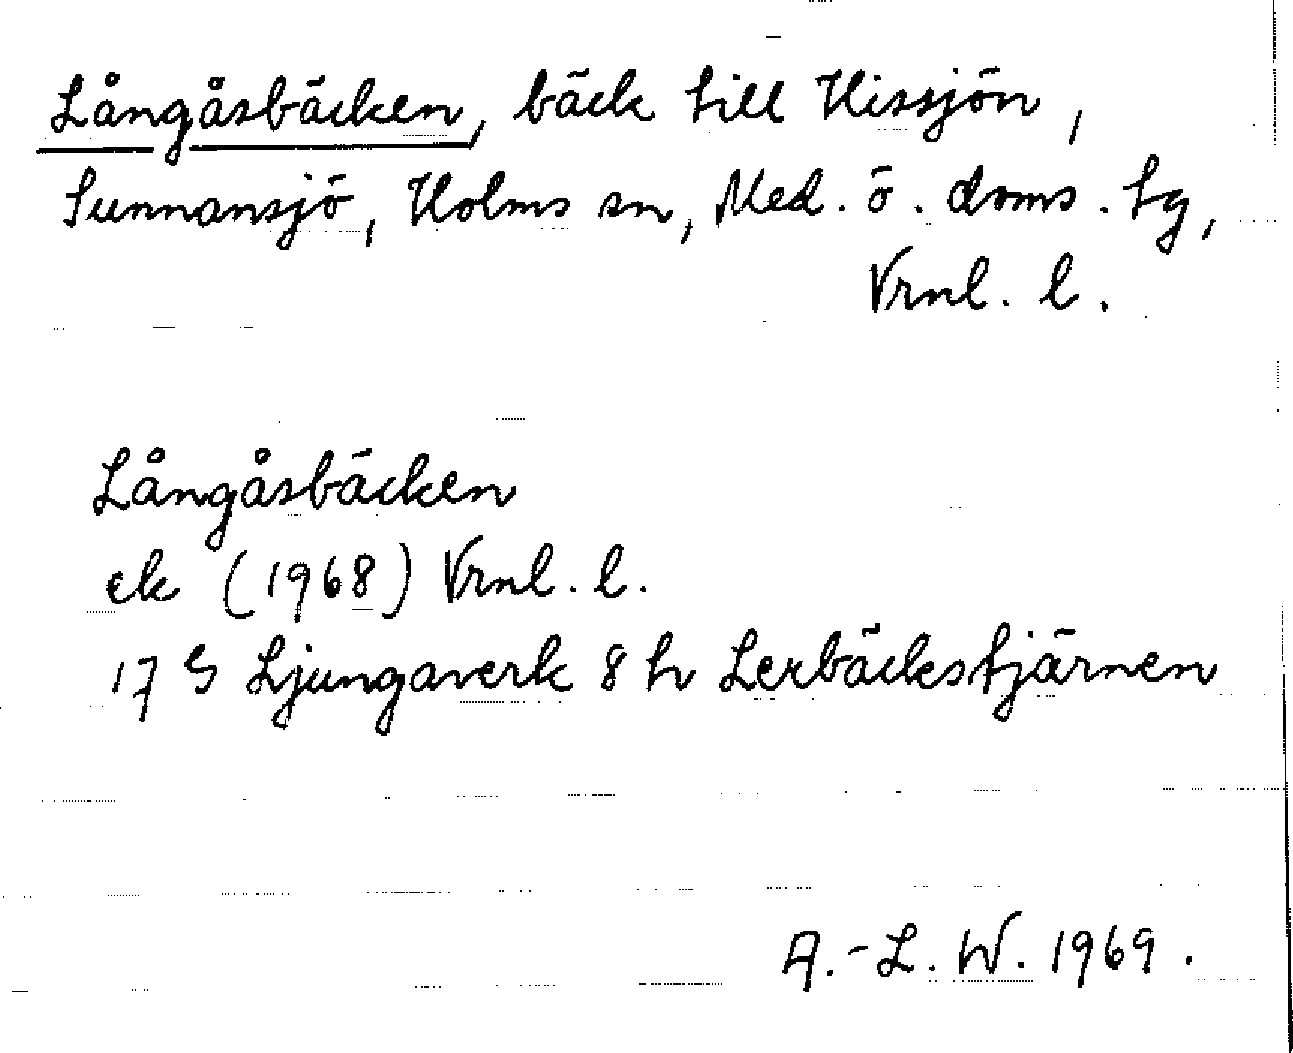 Långåsbäcken, bäck till Hissjön,
Sunnansjö, Holms sn, Med. ö. doms. tg,
Vrnl. l.
Långåsbäcken
ek (1968) Vrnl. l.
17 G Ljungaverk 8 h Lerbäckstjärnen
A.-L. W. 1969.